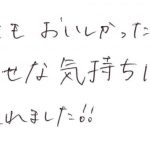 も おいしかった
せな気持ちに
れました!!